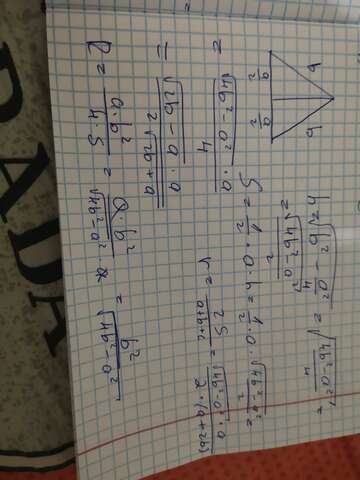 h = √b² - a²/4 = √4b² - a²/4 =
= √4b² - a²/2
S = 1/2 · a · h = 1/2 · a · √4b² - a²/2 =
= a · √4b² - a²/4
r = 2S/a+b+c = a · √4b² - a²/2 · (a+2b) =
= a · √2b - a/2√2b + a
R = a · b²/4 · S = a · b²/a · √4b² - a² =
= b²/√4b² - a²
b
b
a/2
a/2
PADA